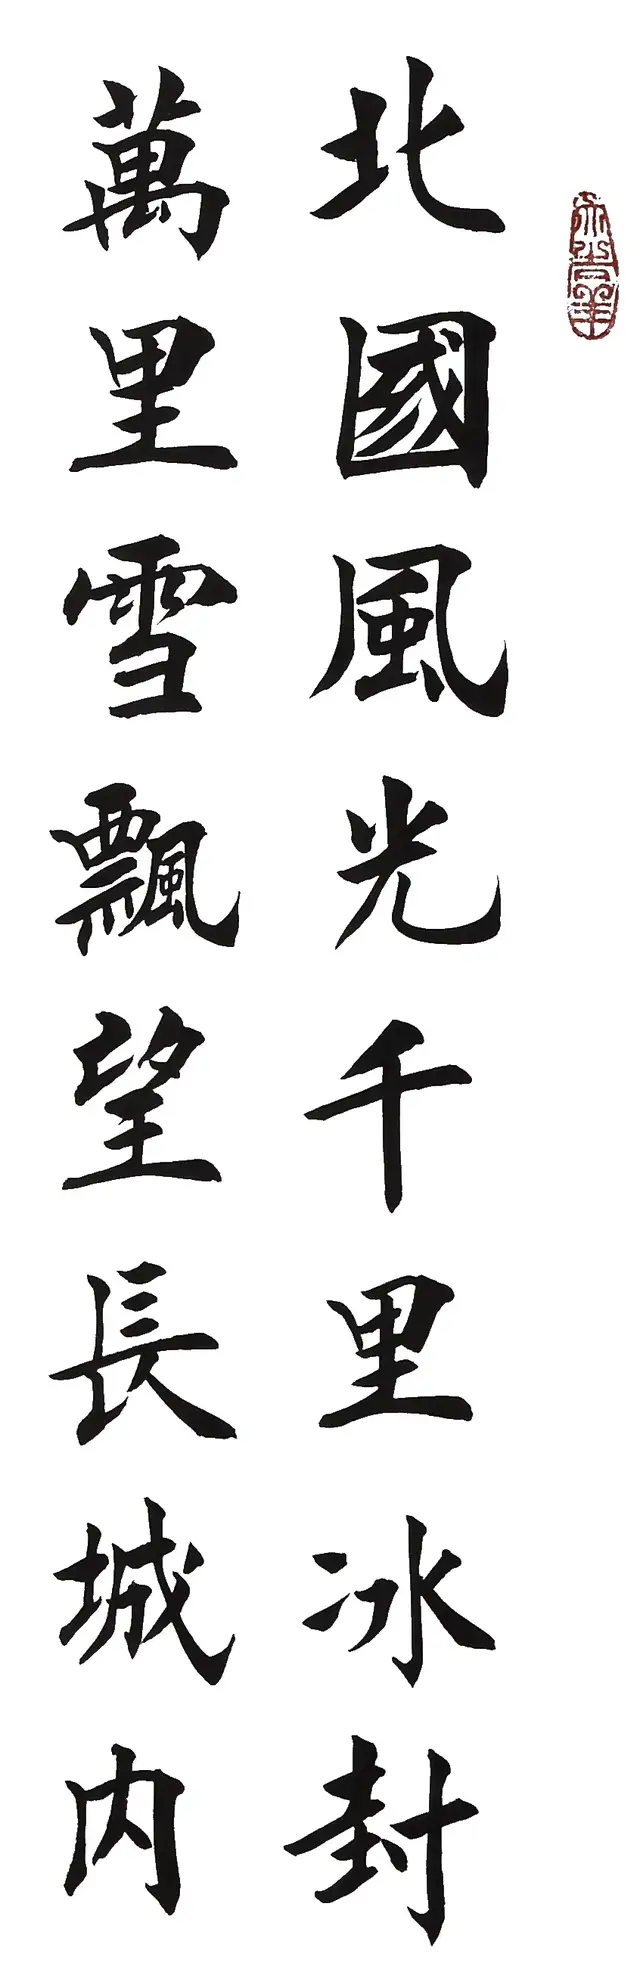 北國風光千里冰封
萬里雪飄望長城内